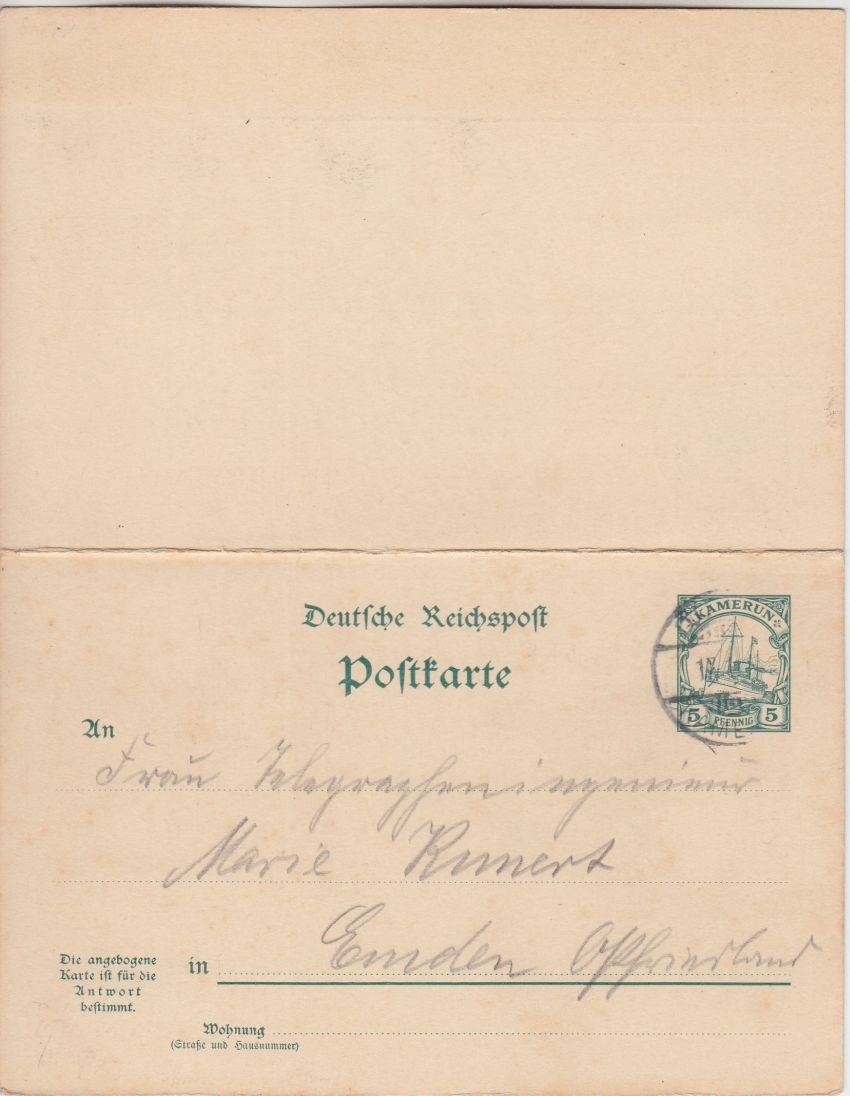 Deutsche Reichspost
Postkarte
KAMERUN
5 PFENNIG 5
An
Frau Telegrapheningenieur
Marie Kunert
Die angebogene
Karte ist für die
Antwort
bestimmt.
in Emden Ostfriesland
Wohnung
(Straße und Hausnummer)